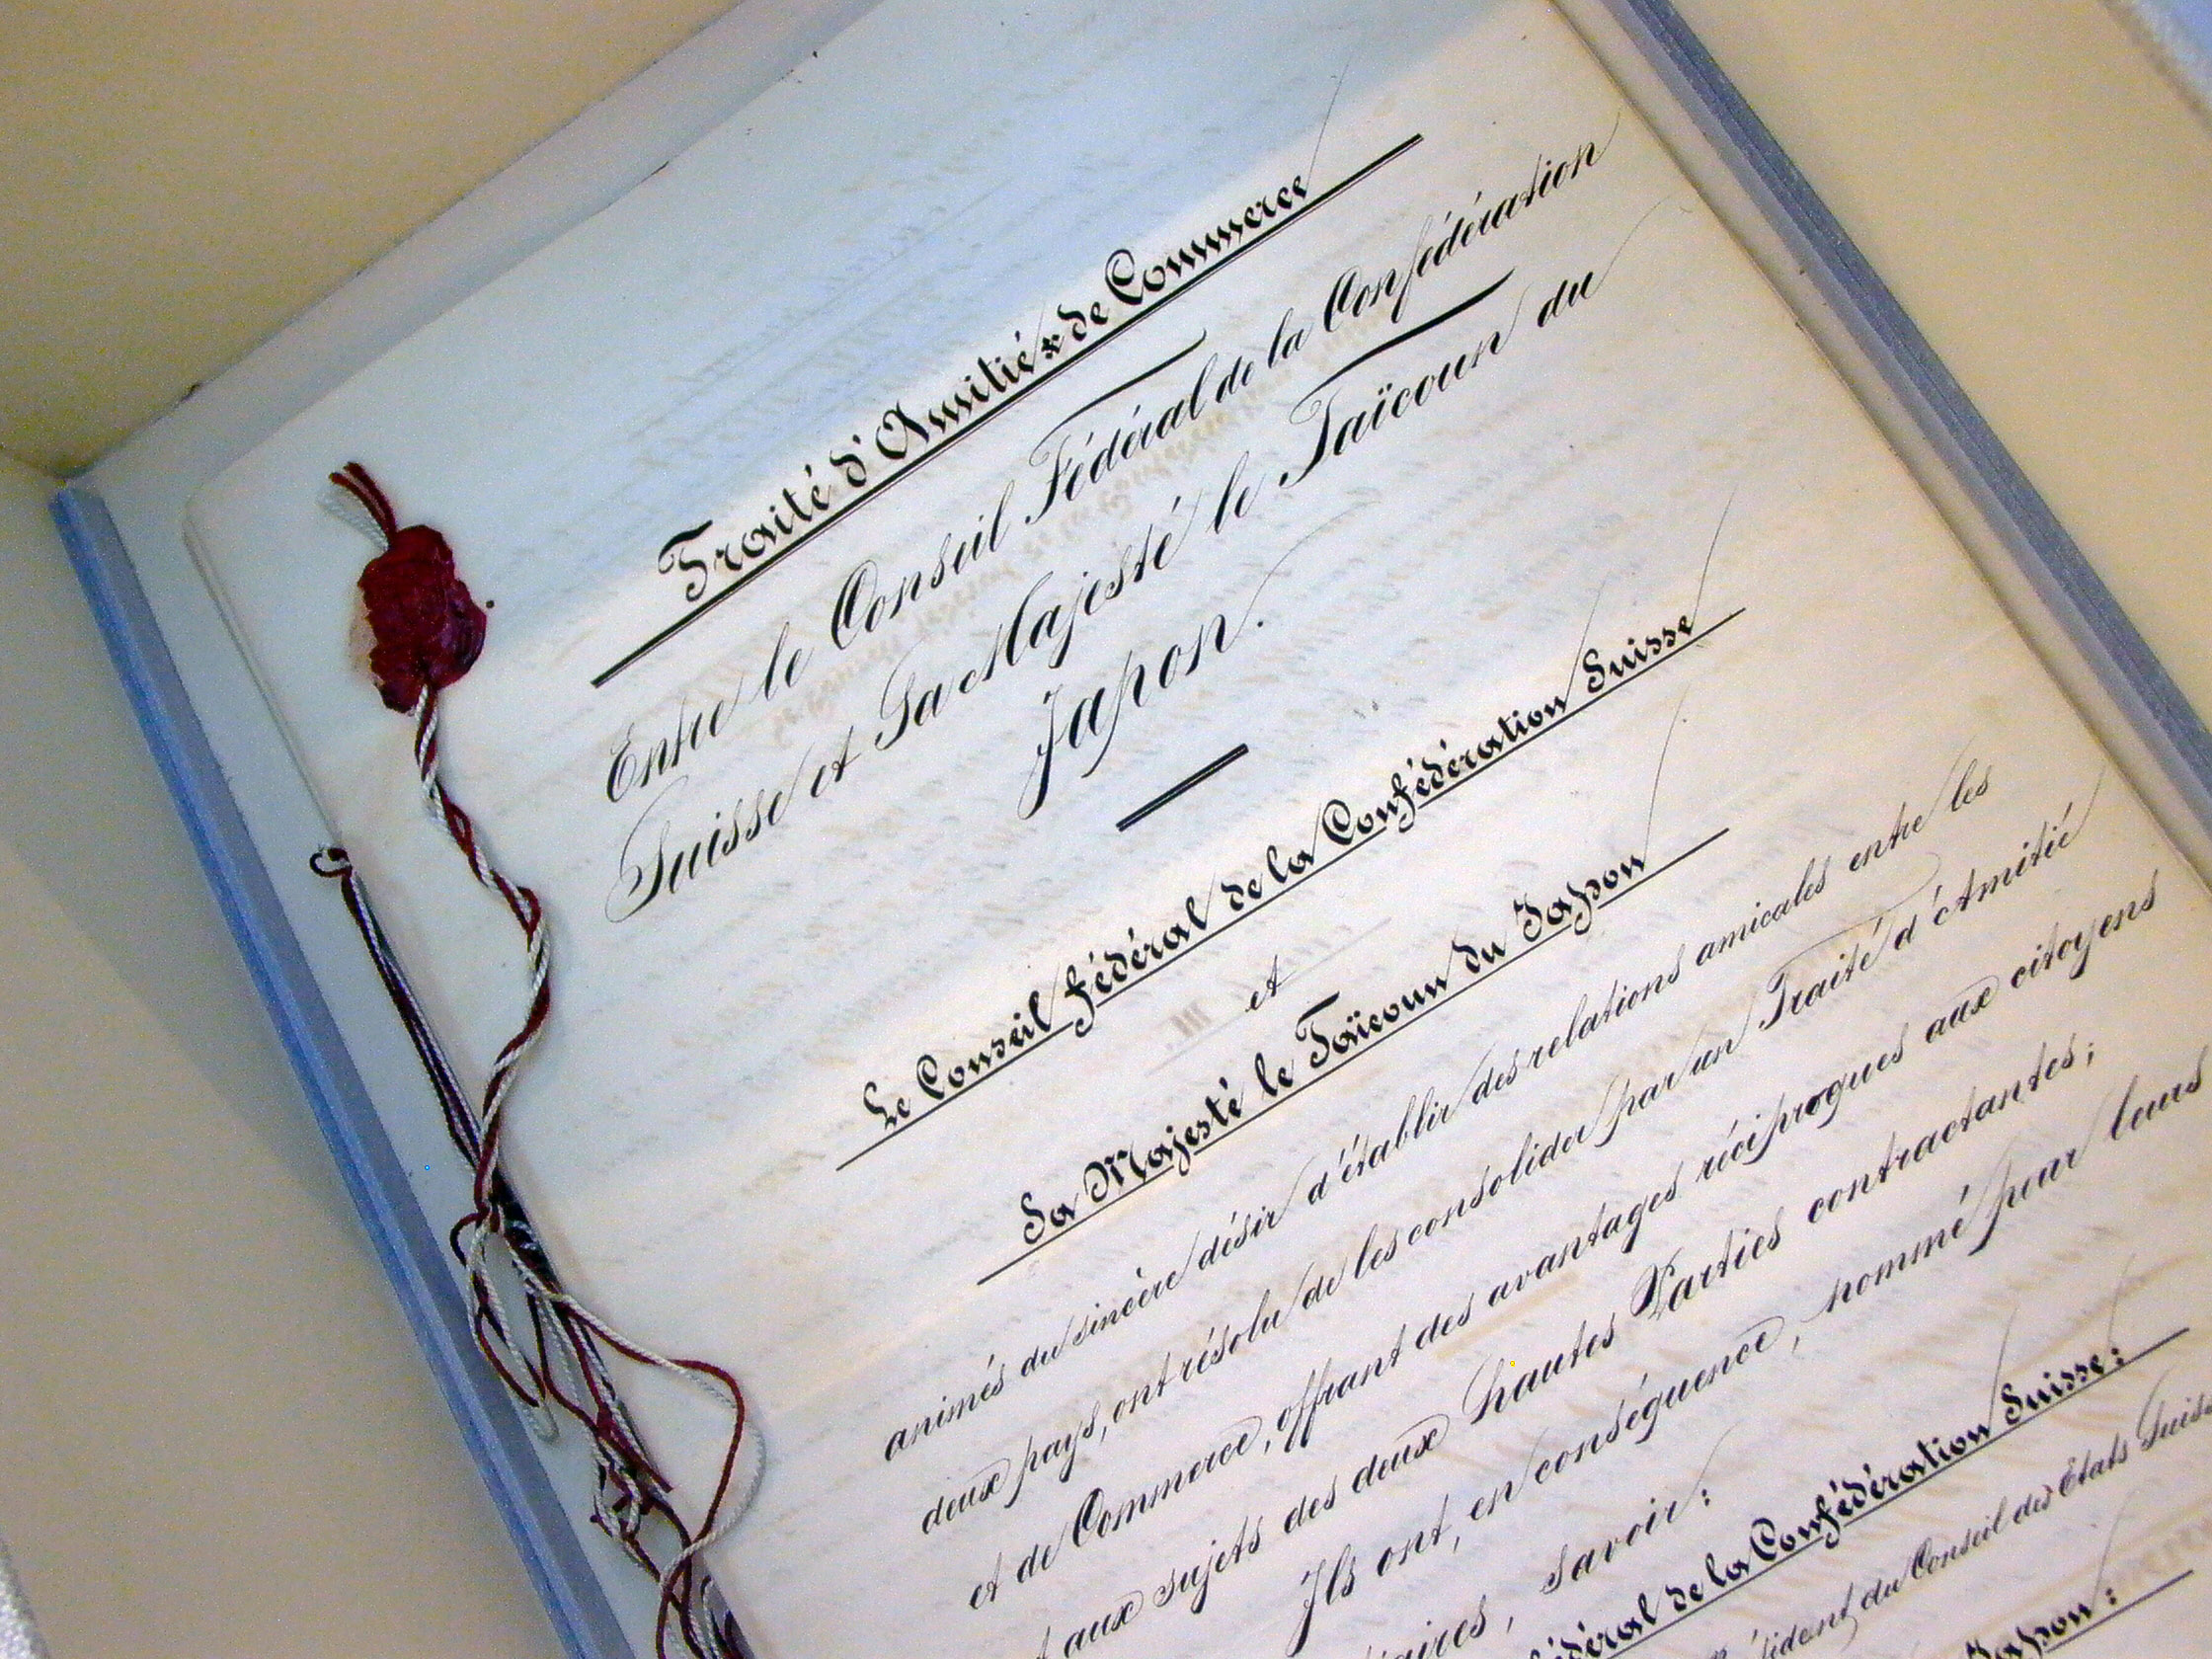 Traité d'Amitié & de Commerce
Entre le Conseil Fédéral de la Confédération
Suisse et Sa Majesté le Taïcoun du
Japon.
Le Conseil fédéral de la Confédération Suisse
et
Sa Majesté le Taïcoun du Japon
animés du sincère désir d'établir des relations amicales entre les
deux pays, ont résolu de les consolider par un Traité d'Amitié
et de Commerce, offrant des avantages réciproques aux citoyens
aux sujets des deux hautes Parties contractantes;
Ils ont, en conséquence, nommé pour leurs
savoir:
de la Confédération Suisse:
du Conseil des Etats
Japon: